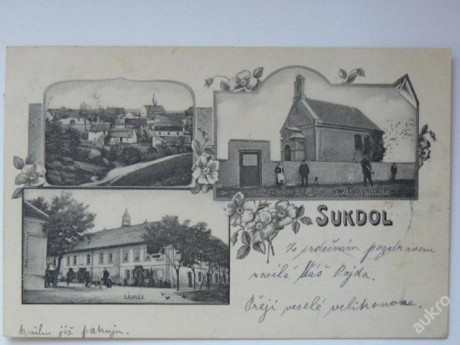 SUKDOL
ZÁMEK
Se srdečným pozdravem
zasílá Váš Vojda.
Přeji veselé velikonoce.
již
aukro